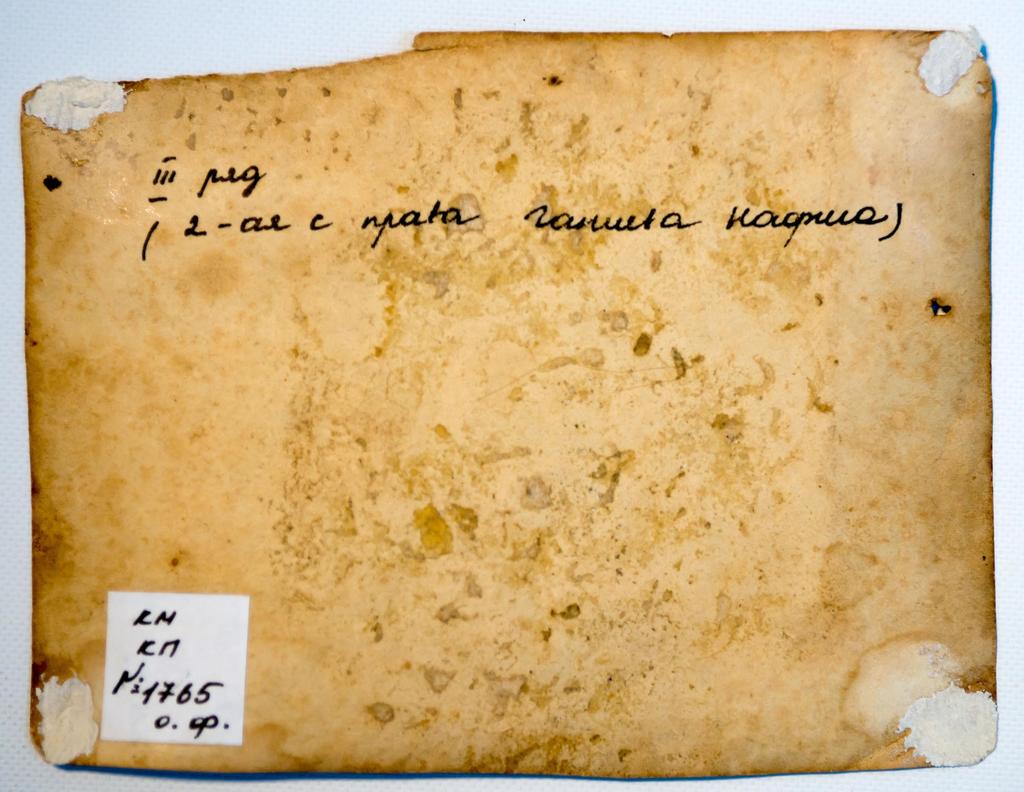 III ряд
(2-ая с права Ганиева Нафиса)
КМ
КП
№ 1765
о. ф.